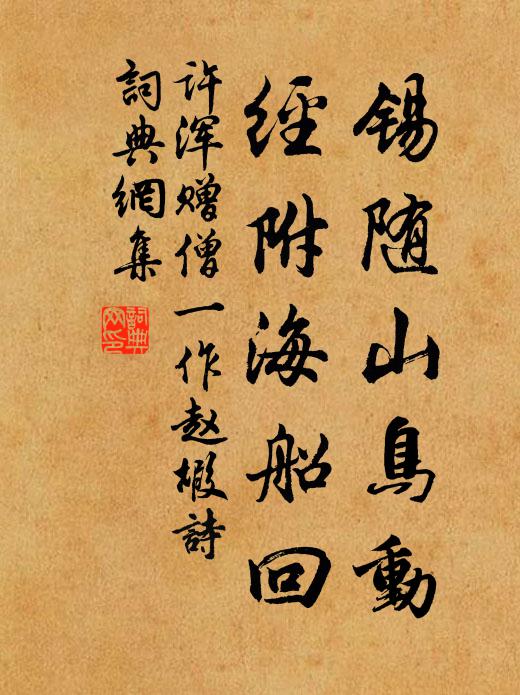 锡随山鳥動
經附海船回
许浑赠僧一作赵嘏詩
詞典網集
詞典网印